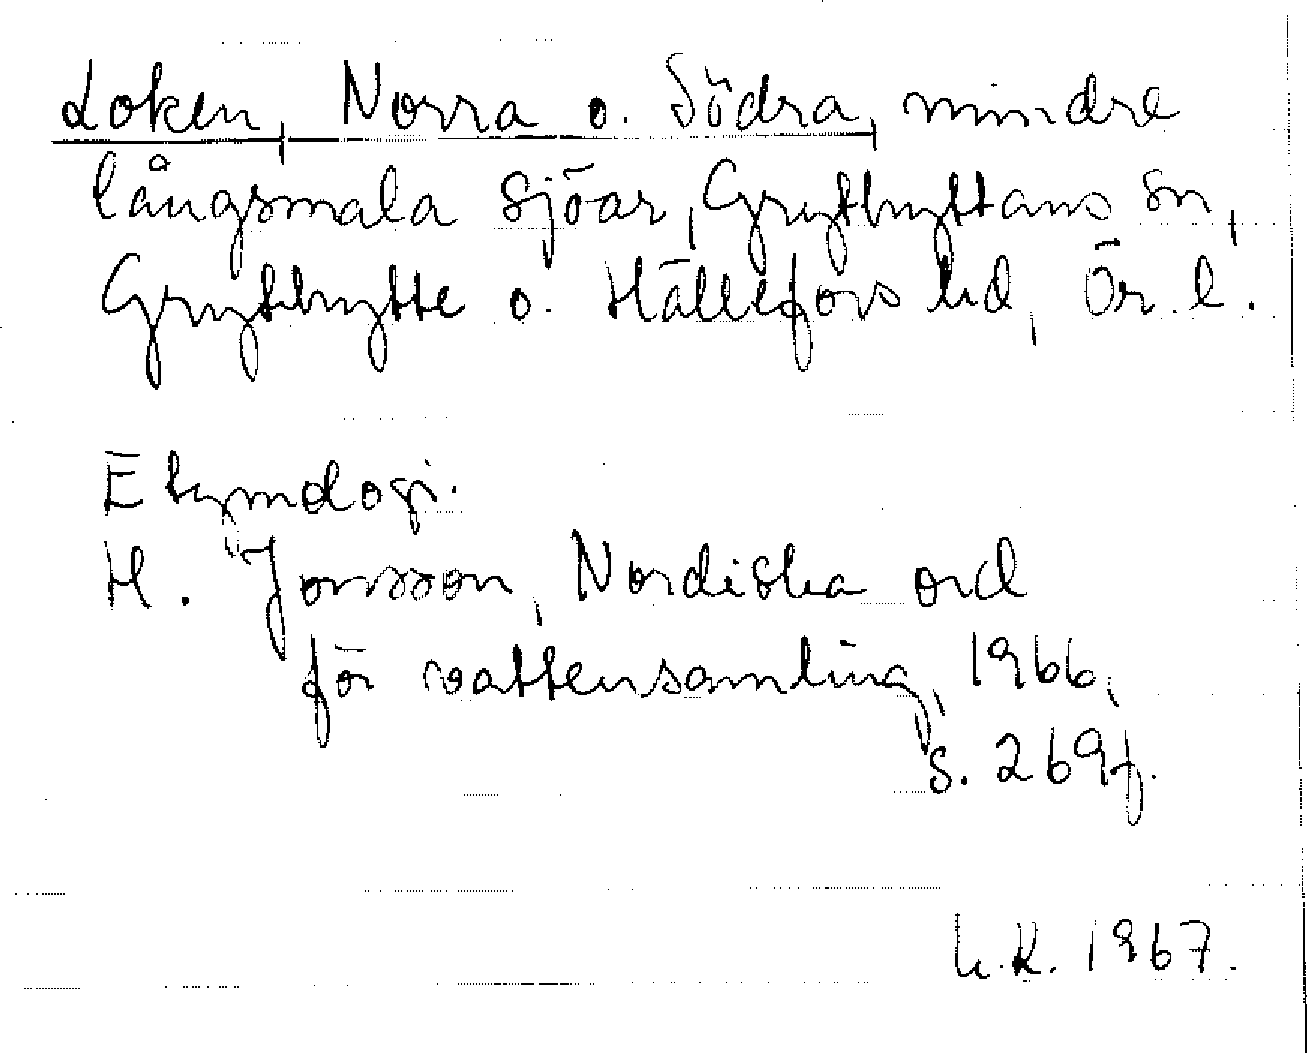 Loken, Norra o. Södra, mindre
långsmala sjöar, Grythyttans sn,
Grythytte o. Hällefors hd, Ör. l.
Etymologi.
H. Jonsson, Nordiska ord
för vattensamling, 1966,
s. 269f.
L.K. 1967.